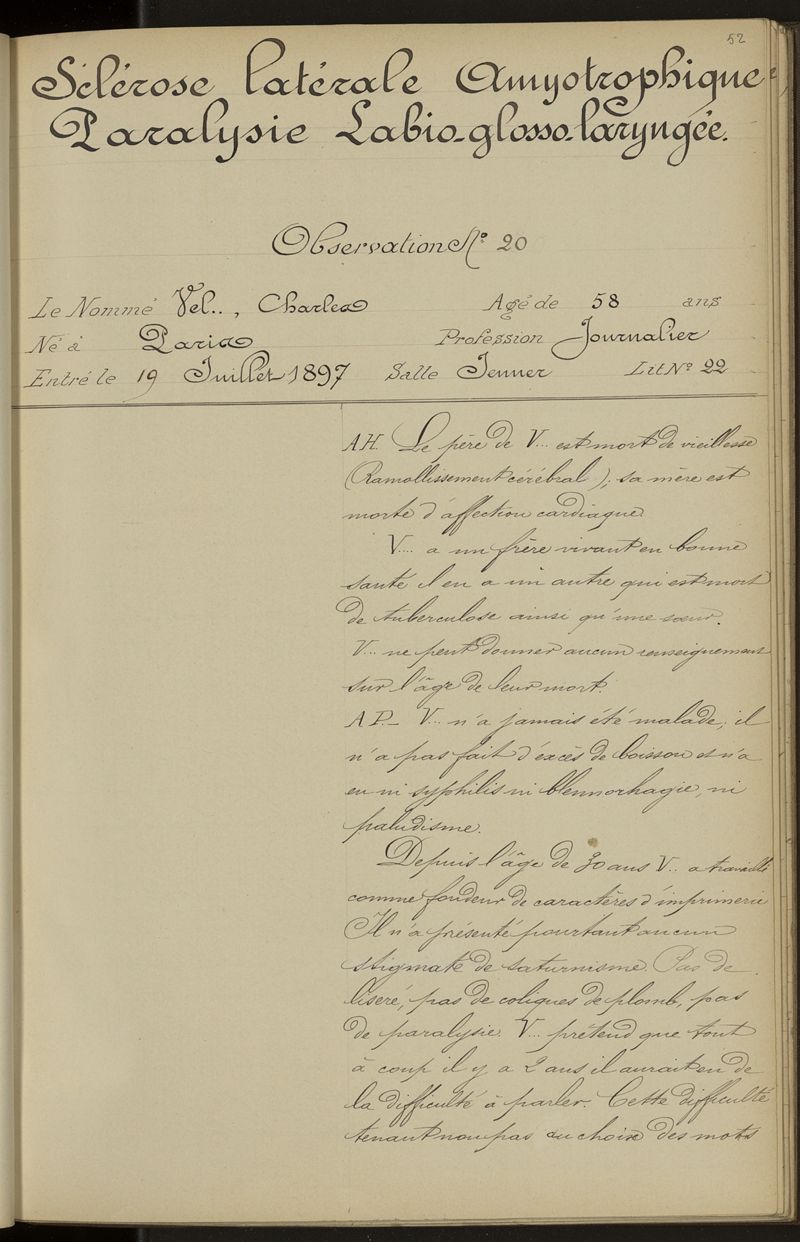 52
Sclérose latérale Amyotrophique
Paralysie Labio-glosso-laryngée.
Observation No 20
Le Nommé Vel.., Charles Agé de 58 ans
Né à Paris Profession Journalier
Entré le 19 Juillet 1897 Salle Jenner Lit No 22
A.H. Le père de V... est mort de vieillesse
(Ramollissement cérébral); sa mère est
morte d'affection cardiaque
V.... a un frère vivant en bonne
santé il en a un autre qui est mort
de tuberculose ainsi qu'une sœur.
V... ne peut donner aucun renseignement
sur l'âge de leur mort.
A P._ V... n'a jamais été malade; il
n'a pas fait d'excès de boisson et n'a
eu ni syphilis ni blennorhagie, ni
paludisme.
Depuis l'âge de 30 ans V.. a travaillé
comme fondeur de caractères d'imprimerie
Il n'a présenté pourtant aucun
stigmate de saturnisme. Pas de
liseré, pas de coliques de plomb, pas
de paralysie. V... prétend que tout
à coup il y a 2 ans il aurait eu de
la difficulté à parler. Cette difficulté
tenant non pas au choix des mots